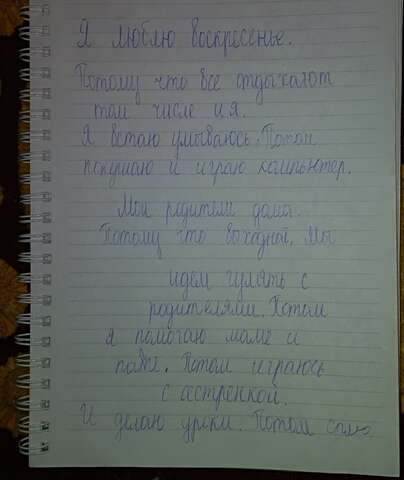 Я люблю воскресенье.
Потому что все отдыхают
том числе и я.
Я встаю умываюсь. Потом
покушаю и играю компьютер.
Мои родители дома.
Потому что выходной. Мы
идём гулять с
родителями. Потом
я помогаю маме и
папе. Потом играюсь
с сестренкой.
И делаю уроки. Потом сплю.